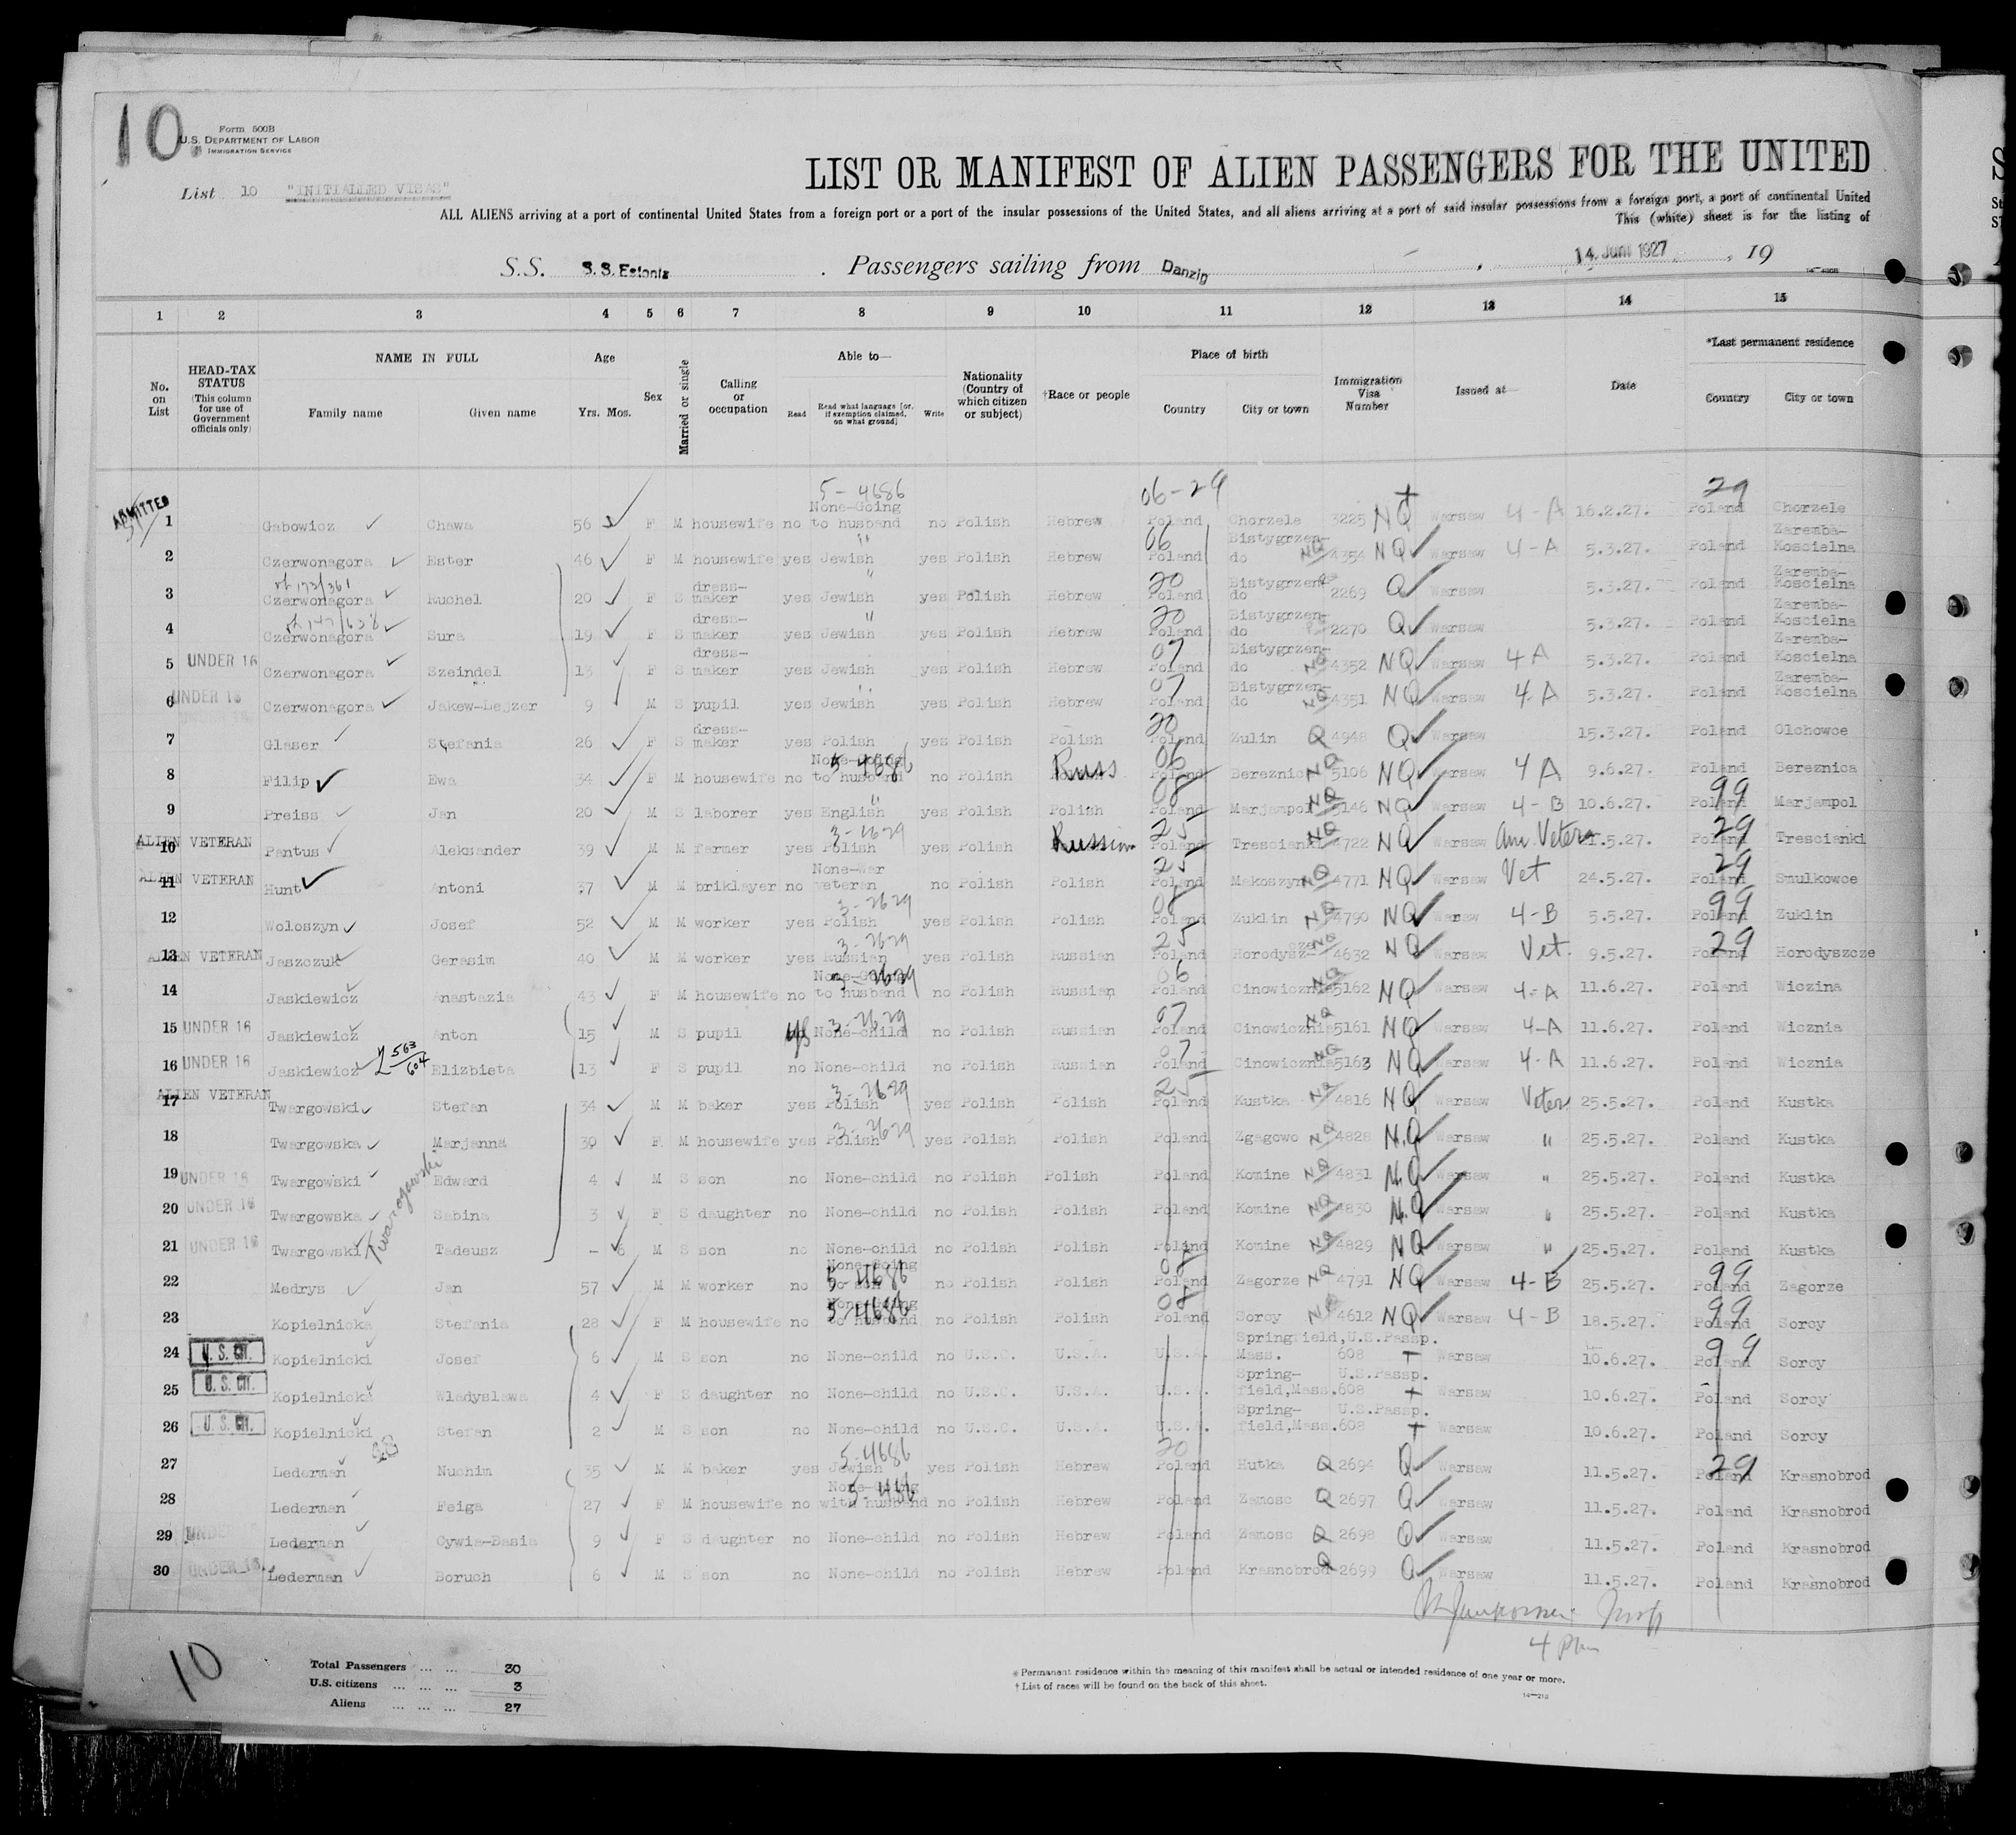 10.
Form 500B
U.S. DEPARTMENT OF LABOR
IMMIGRATION SERVICE
List 10 "INITIALLED VISAS"
LIST OR MANIFEST OF ALIEN PASSENGERS FOR THE UNITED
ALL ALIENS arriving at a port of continental United States from a foreign port or a port of the insular possessions of the United States, and all aliens arriving at a port of said insular possessions from a foreign port, a port of continental United
This (white) sheet is for the listing of
S.S. S.S. Estonia . Passengers sailing from Danzig , 14. Juni 1927 , 19
1 2 3 4 5 6 7 8 9 10 11 12 13 14 15
No. on List HEAD-TAX STATUS (This column for use of Government officials only) NAME IN FULL Family name Given name Age Yrs. Mos. Sex Married or single Calling or occupation Able to— Read Read what language [or, if exemption claimed, on what ground] Write Nationality (Country of which citizen or subject) †Race or people Place of birth Country City or town Immigration Visa Number Issued at— Date *Last permanent residence Country City or town
5-4686 06-29 29
ADMITTED 1 Gabowicz Chawa 56 F M housewife no None-Going to husband no Polish Hebrew Poland Chorzele 3225 NQ Warsaw 4-A 16.2.27. Poland Chorzele
2 Czerwonagora Ester 46 F M housewife yes Jewish yes Polish Hebrew 06 Poland Bistygrzen-do NQ 4354 NQ Warsaw 4-A 5.3.27. Poland Zaremba-Koscielna
3 Czerwonagora Ruchel 20 F S dress-maker yes Jewish yes Polish Hebrew 20 Poland Bistygrzen-do 2269 Q Warsaw 5.3.27. Poland Zaremba-Koscielna
4 Czerwonagora Sura 19 F S dress-maker yes Jewish yes Polish Hebrew 20 Poland Bistygrzen-do 2270 Q Warsaw 5.3.27. Poland Zaremba-Koscielna
5 UNDER 16 Czerwonagora Szeindel 13 F S dress-maker yes Jewish yes Polish Hebrew 07 Poland Bistygrzen-do NQ 4352 NQ Warsaw 4A 5.3.27. Poland Zaremba-Koscielna
6 UNDER 16 Czerwonagora Jakew-Lejzer 9 M S pupil yes Jewish yes Polish Hebrew 07 Poland Bistygrzen-do NQ 4351 NQ Warsaw 4-A 5.3.27. Poland Zaremba-Koscielna
7 Glaser Stefania 26 F S dress-maker yes Polish yes Polish Polish 20 Poland Zulin Q 4948 Q Warsaw 15.3.27. Poland Olchowce
8 Filip Ewa 34 F M housewife no None-Going to husband 5-4686 no Polish Russ 06 Poland Bereznica NQ 5106 NQ Warsaw 4A 9.6.27. Poland Bereznica
9 Preiss Jan 20 M S laborer yes English yes Polish Polish 08 Poland Marjampol NQ 5146 NQ Warsaw 4-B 10.6.27. 99 Poland Marjampol
10 ALIEN VETERAN Pantus Aleksander 39 M M farmer yes Polish 3-2629 yes Polish Russian 25 Poland Trescianki NQ 4722 NQ Warsaw Am. Veteran 21.5.27. 29 Poland Trescianki
11 ALIEN VETERAN Hunt Antoni 37 M M briklayer no None-War veteran no Polish Polish 25 Poland Makoszyn NQ 4771 NQ Warsaw Vet 24.5.27. 29 Poland Smulkowce
12 Woloszyn Josef 52 M M worker yes Polish 3-2629 yes Polish Polish 08 Poland Zuklin NQ 4790 NQ Warsaw 4-B 5.5.27. 99 Poland Zuklin
13 ALIEN VETERAN Jaszczuk Gerasim 40 M M worker yes Russian 3-2629 yes Polish Russian 25 Poland Horodysz-cze NQ 4632 NQ Warsaw Vet. 9.5.27. 29 Poland Horodyszcze
14 Jaskiewicz Anastazia 43 F M housewife no None-Going to husband 3-2629 no Polish Russian 06 Poland Cinowicznia NQ 5162 NQ Warsaw 4-A 11.6.27. Poland Wiczina
15 UNDER 16 Jaskiewicz Anton 15 M S pupil yes None-child 3-2629 no Polish Russian 07 Poland Cinowicznia NQ 5161 NQ Warsaw 4-A 11.6.27. Poland Wicznia
16 UNDER 16 Jaskiewicz 563/604 Elizbieta 13 F S pupil no None-child no Polish Russian 07 Poland Cinowicznia NQ 5163 NQ Warsaw 4-A 11.6.27. Poland Wicznia
17 ALIEN VETERAN Twargowski Stefan 34 M M baker yes Polish 3-2629 yes Polish Polish 25 Poland Kustka NQ 4816 NQ Warsaw Veter 25.5.27. Poland Kustka
18 Twargowska Marjanna 39 F M housewife yes Polish 3-2629 yes Polish Polish Poland Zgagowo NQ 4828 N.Q Warsaw " 25.5.27. Poland Kustka
19 UNDER 16 Twargowski Edward 4 M S son no None-child no Polish Polish Poland Komine NQ 4831 N.Q Warsaw " 25.5.27. Poland Kustka
20 UNDER 16 Twargowska Sabina 3 F S daughter no None-child no Polish Polish Poland Komine NQ 4830 N.Q Warsaw " 25.5.27. Poland Kustka
21 UNDER 16 Twargowski Twarogowski Tadeusz - 6 M S son no None-child no Polish Polish Poland Komine NQ 4829 NQ Warsaw " 25.5.27. Poland Kustka
22 Medrys Jan 57 M M worker no None-Going to son 5-4686 no Polish Polish 08 Poland Zagorze NQ 4791 NQ Warsaw 4-B 25.5.27. 99 Poland Zagorze
23 Kopielnicka Stefania 28 F M housewife no None-Going to husband 5-4686 no Polish Polish 08 Poland Sorcy NQ 4612 NQ Warsaw 4-B 18.5.27. 99 Poland Sorcy
24 U.S. CIT. Kopielnicki Josef 6 M S son no None-child no U.S.C. U.S.A. U.S.A. Springfield, Mass. U.S.Passp. 608 Warsaw 10.6.27. 99 Poland Sorcy
25 U.S. CIT. Kopielnicka Wladyslawa 4 F S daughter no None-child no U.S.C. U.S.A. U.S.A. Spring-field,Mass. U.S.Passp. 608 Warsaw 10.6.27. Poland Sorcy
26 U.S. CIT. Kopielnicki Stefan 2 M S son no None-child no U.S.C. U.S.A. U.S.A. Spring-field,Mass. U.S.Passp. 608 Warsaw 10.6.27. Poland Sorcy
27 Lederman Nuchim 35 M M baker yes Jewish 5-4686 yes Polish Hebrew 20 Poland Hutka Q 2694 Q Warsaw 11.5.27. 29 Poland Krasnobrod
28 Lederman Feiga 27 F M housewife no None-Going with husband no Polish Hebrew Poland Zamosc Q 2697 Q Warsaw 11.5.27. Poland Krasnobrod
29 UNDER 16 Lederman Cywia-Basia 9 F S daughter no None-child no Polish Hebrew Poland Zamosc Q 2698 Q Warsaw 11.5.27. Poland Krasnobrod
30 UNDER 16. Lederman Boruch 6 M S son no None-child no Polish Hebrew Poland Krasnobrod Q 2699 Q Warsaw 11.5.27. Poland Krasnobrod
10
Total Passengers ... ... 30
U.S. citizens ... ... ... 3
Aliens ... ... ... 27
*Permanent residence within the meaning of this manifest shall be actual or intended residence of one year or more.
†List of races will be found on the back of this sheet.